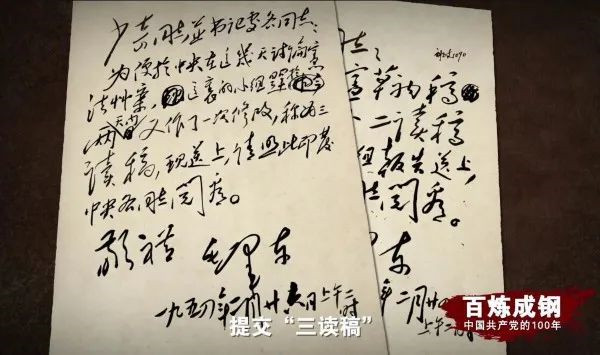 少奇同志并书记处各同志：
为便于中央在这几天讨论宪
法草案，这里的小组
两天内又作了一次修改，称为三
读稿，现送上，请照此印发
中央各同志阅看。
敬礼 毛泽东
一九五四年二月廿六日上午二时
志：
宪草初稿
二读稿
组报告送上，
志阅看。
东
年二月廿
上午二时
百炼成钢
中国共产党的100年
提交“三读稿”